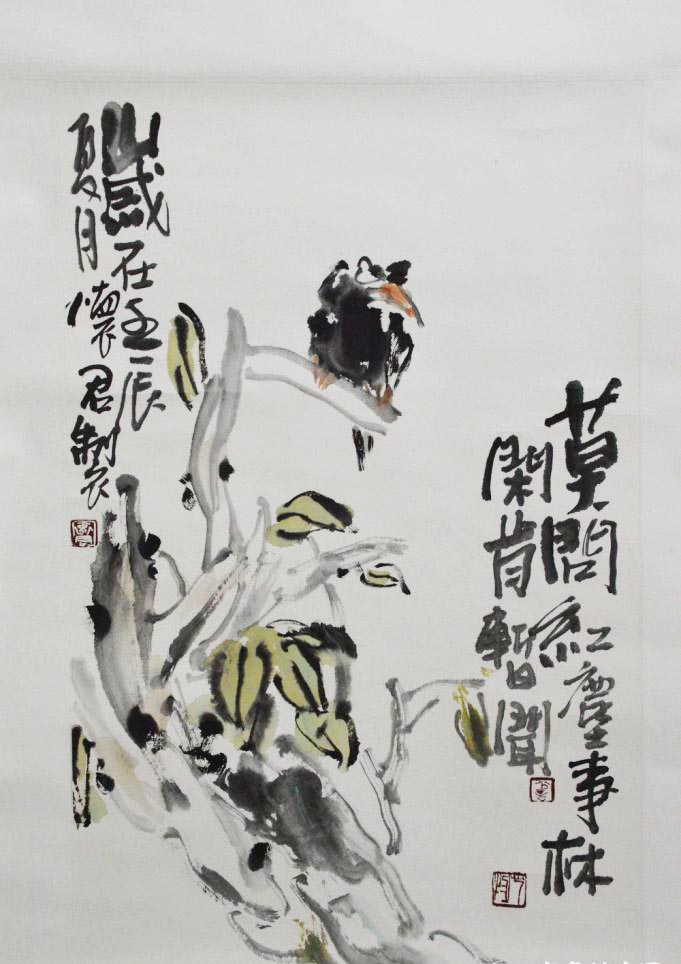 莫問紅塵事林
閑肯暫聞
歲在壬辰
夏月懷君製